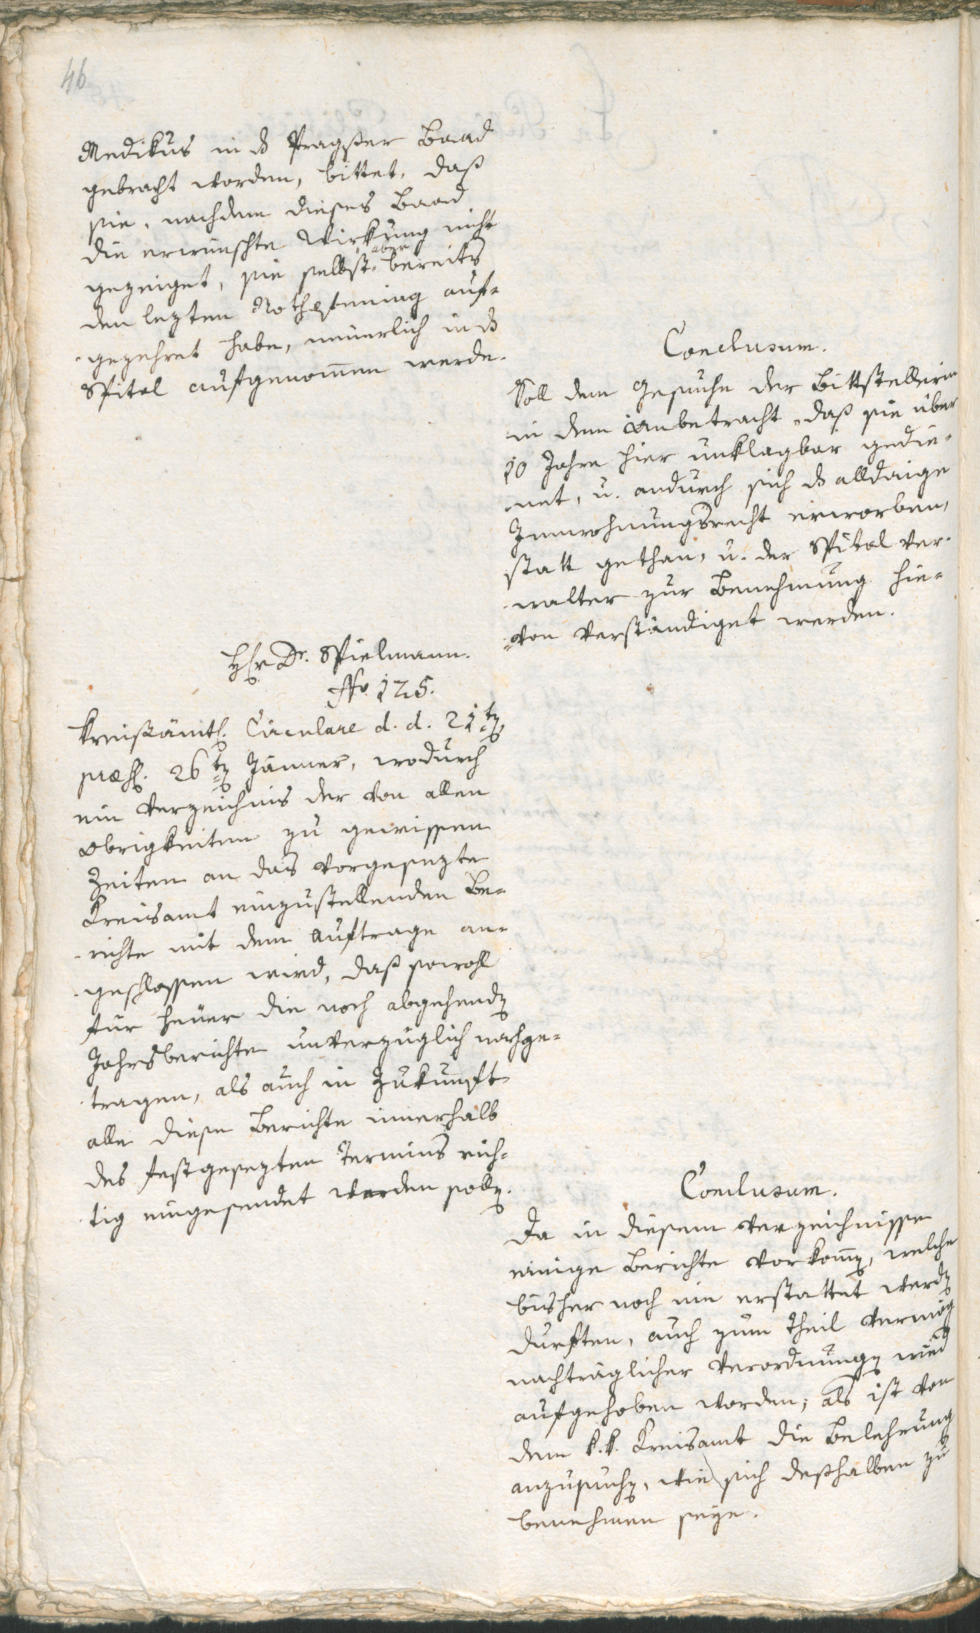 46
Medikus in ds Pragßer Baad
gebracht worden, bittet, daß
sie, nachdem dieses Baad
die erwünschte Wirkung nicht
gezeiget, sie selbst aber bereits
den lezten Nothpfenning auf-
gezehret habe, neuerlich in ds
Spital aufgenommen werde.
Conclusum.
Soll dem Gesuche der Bittstellerin
in dem Anbetracht, daß sie über
10 Jahre hier unklagbar gedie-
net, u. andurch sich ds alldaige
Innwohnungsrecht erworben,
statt gethan, u. der Spital Ver-
walter zur Benehmung hie-
von verständiget werden.
H[er]r Dr. Spielmann.
No. 125.
Kreisämtl. Circulare d. d. 21ten
præs. 26ten Jänner, wodurch
ein Verzeichnis der von allen
Obrigkeiten zu gewissen
Zeiten an das vorgesezte
Kreisamt einzustellenden Be-
richte mit dem Auftrage an-
geschlossen wird, daß sowohl
für heuer die noch abgehenden
Jahrsberichte unverzüglich nachge-
tragen, als auch in Zukunft
alle diese Berichte innerhalb
des festgesezten Termins rich-
tig eingesendet werden sollen.
Conclusum.
Da in diesem Verzeichnisse
einige Berichte vorkommen, welche
bisher noch nie erstattet werden
durften, auch zum Theil vermög
nachträglicher Verordnungen wied
aufgehoben worden; als ist von
dem k.k. Kreisamt die Belehrung
anzusuchen, wie sich deßhalben zu
benehmen seye.